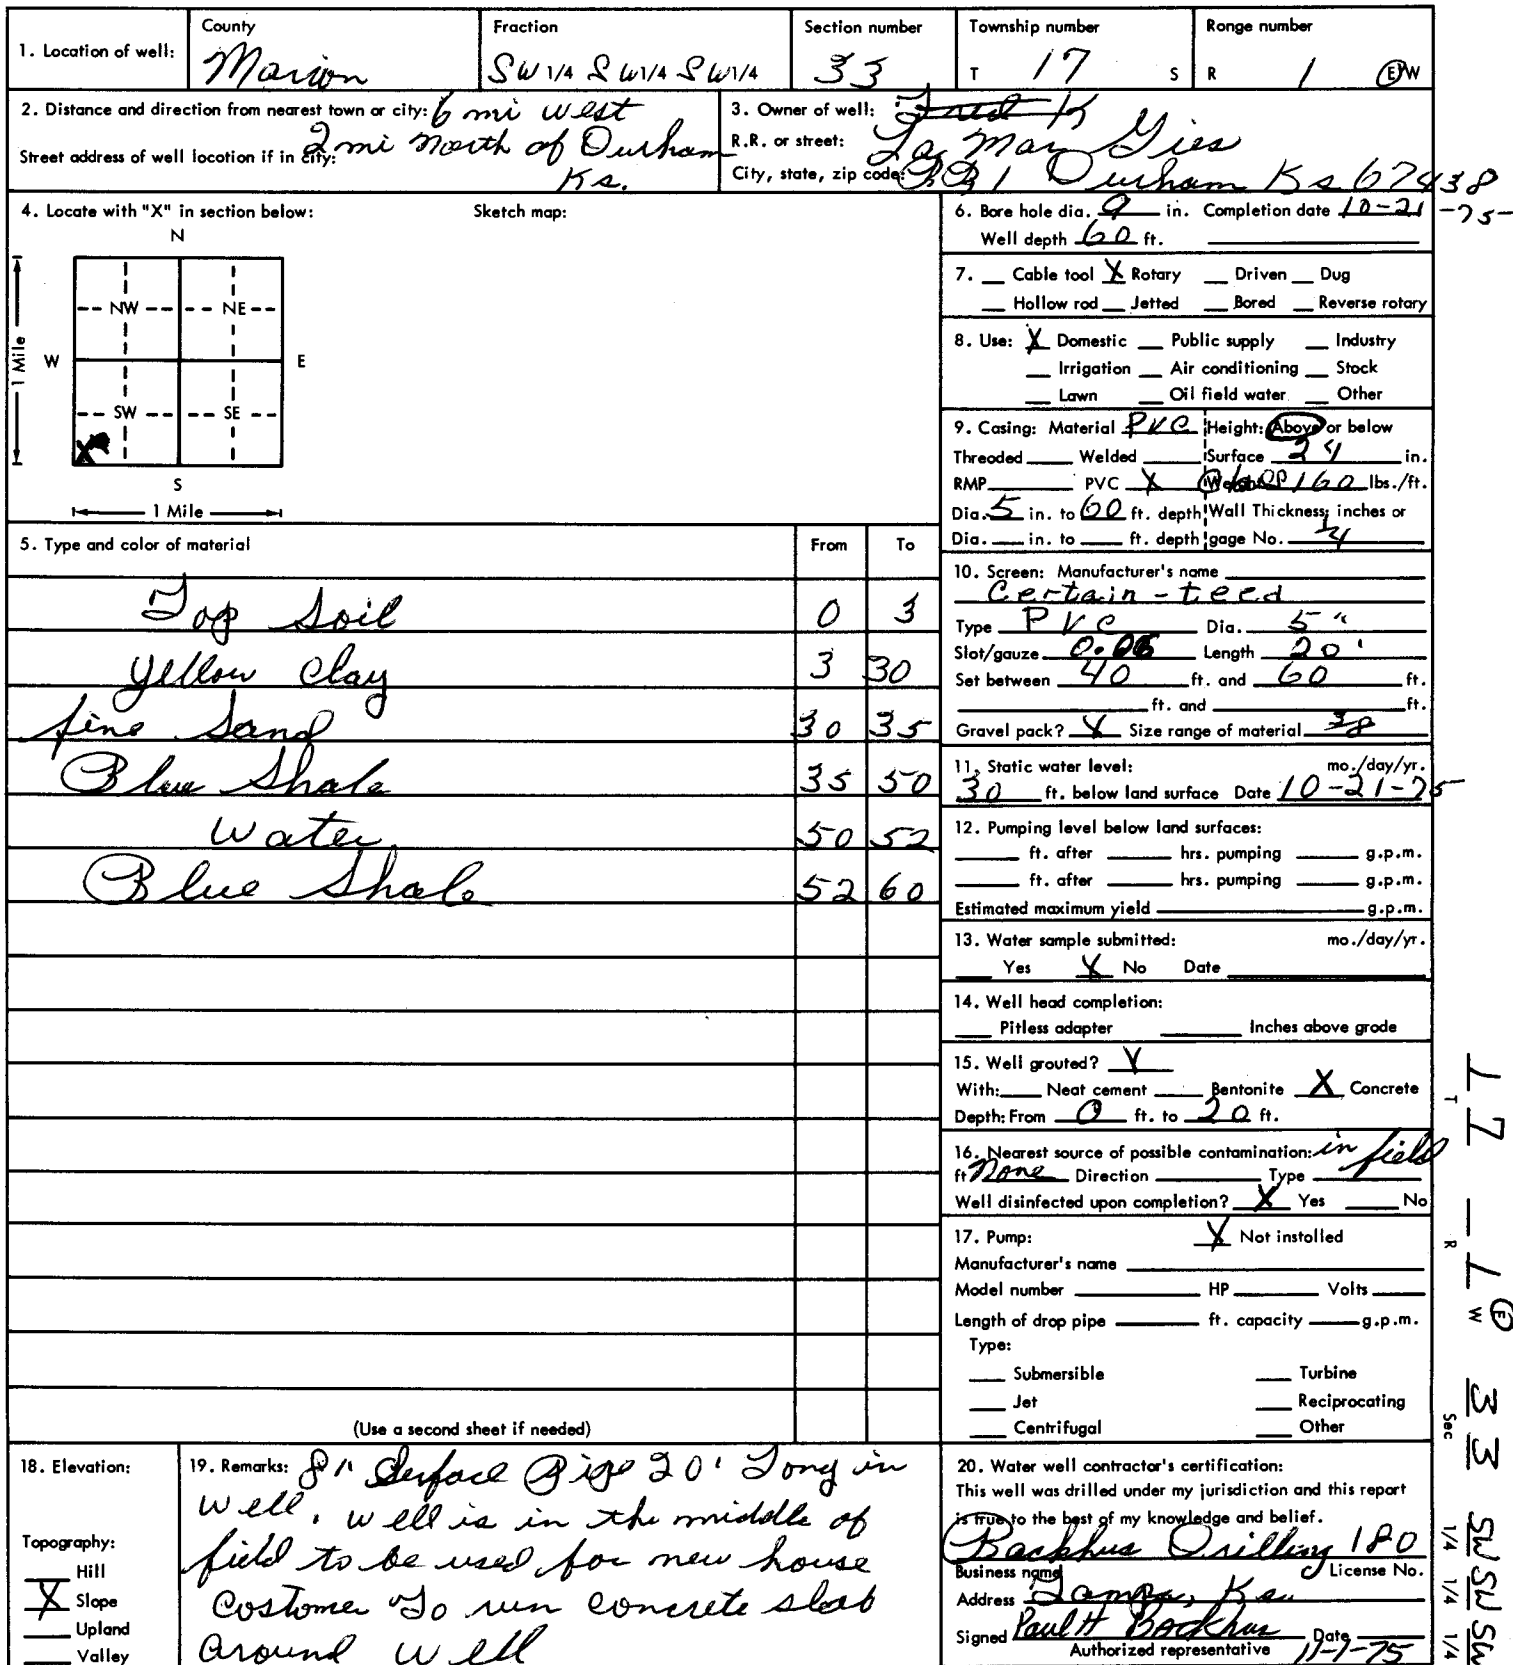 1. Location of well: County Marion Fraction SW 1/4 SW 1/4 SW 1/4 Section number 33 Township number T 17 S Range number R 1 E/W
2. Distance and direction from nearest town or city: 6 mi west
2 mi North of Durham
Street address of well location if in city:
Ks.
3. Owner of well: Fred K
R.R. or street: La Mar Gies
City, state, zip code: RR 1 Durham Ks 67438
4. Locate with "X" in section below: Sketch map:
N
NW NE
W E
1 Mile
SW SE
X
S
1 Mile
5. Type and color of material From To
Top Soil 0 3
Yellow Clay 3 30
fine Sand 30 35
Blue Shale 35 50
Water 50 52
Blue Shale 52 60
(Use a second sheet if needed)
6. Bore hole dia. 9 in. Completion date 10-21-75
Well depth 60 ft.
7. Cable tool X Rotary Driven Dug
Hollow rod Jetted Bored Reverse rotary
8. Use: X Domestic Public supply Industry
Irrigation Air conditioning Stock
Lawn Oil field water Other
9. Casing: Material PVC Height: Above or below
Threaded Welded Surface 24 in.
RMP PVC X 160 lbs./ft.
Dia. 5 in. to 60 ft. depth Wall Thickness; inches or
Dia. in. to ft. depth gage No. 1/4
10. Screen: Manufacturer's name
Certain-teed
Type PVC Dia. 5"
Slot/gauze 0.06 Length 20'
Set between 40 ft. and 60 ft.
ft. and ft.
Gravel pack? X Size range of material 3/8
11. Static water level: mo./day/yr.
30 ft. below land surface Date 10-21-75
12. Pumping level below land surfaces:
ft. after hrs. pumping g.p.m.
ft. after hrs. pumping g.p.m.
Estimated maximum yield g.p.m.
13. Water sample submitted: mo./day/yr.
Yes X No Date
14. Well head completion:
Pitless adapter Inches above grade
15. Well grouted? X
With: Neat cement Bentonite X Concrete
Depth: From 0 ft. to 20 ft.
16. Nearest source of possible contamination: in field
ft None Direction Type
Well disinfected upon completion? X Yes No
17. Pump: X Not installed
Manufacturer's name
Model number HP Volts
Length of drop pipe ft. capacity g.p.m.
Type:
Submersible Turbine
Jet Reciprocating
Centrifugal Other
18. Elevation:
Topography:
Hill
X Slope
Upland
Valley
19. Remarks: 8" Surface Pipe 20' Long in
well. well is in the middle of
field to be used for new house
Costomer To run concrete slab
around well
20. Water well contractor's certification:
This well was drilled under my jurisdiction and this report
is true to the best of my knowledge and belief.
Backhus Drilling 180
Business name License No.
Address Tampa, Ks
Signed Paul H Backhus Date 11-1-75
Authorized representative
T 17 R 1 E W Sec 33 SW 1/4 SW 1/4 SW 1/4